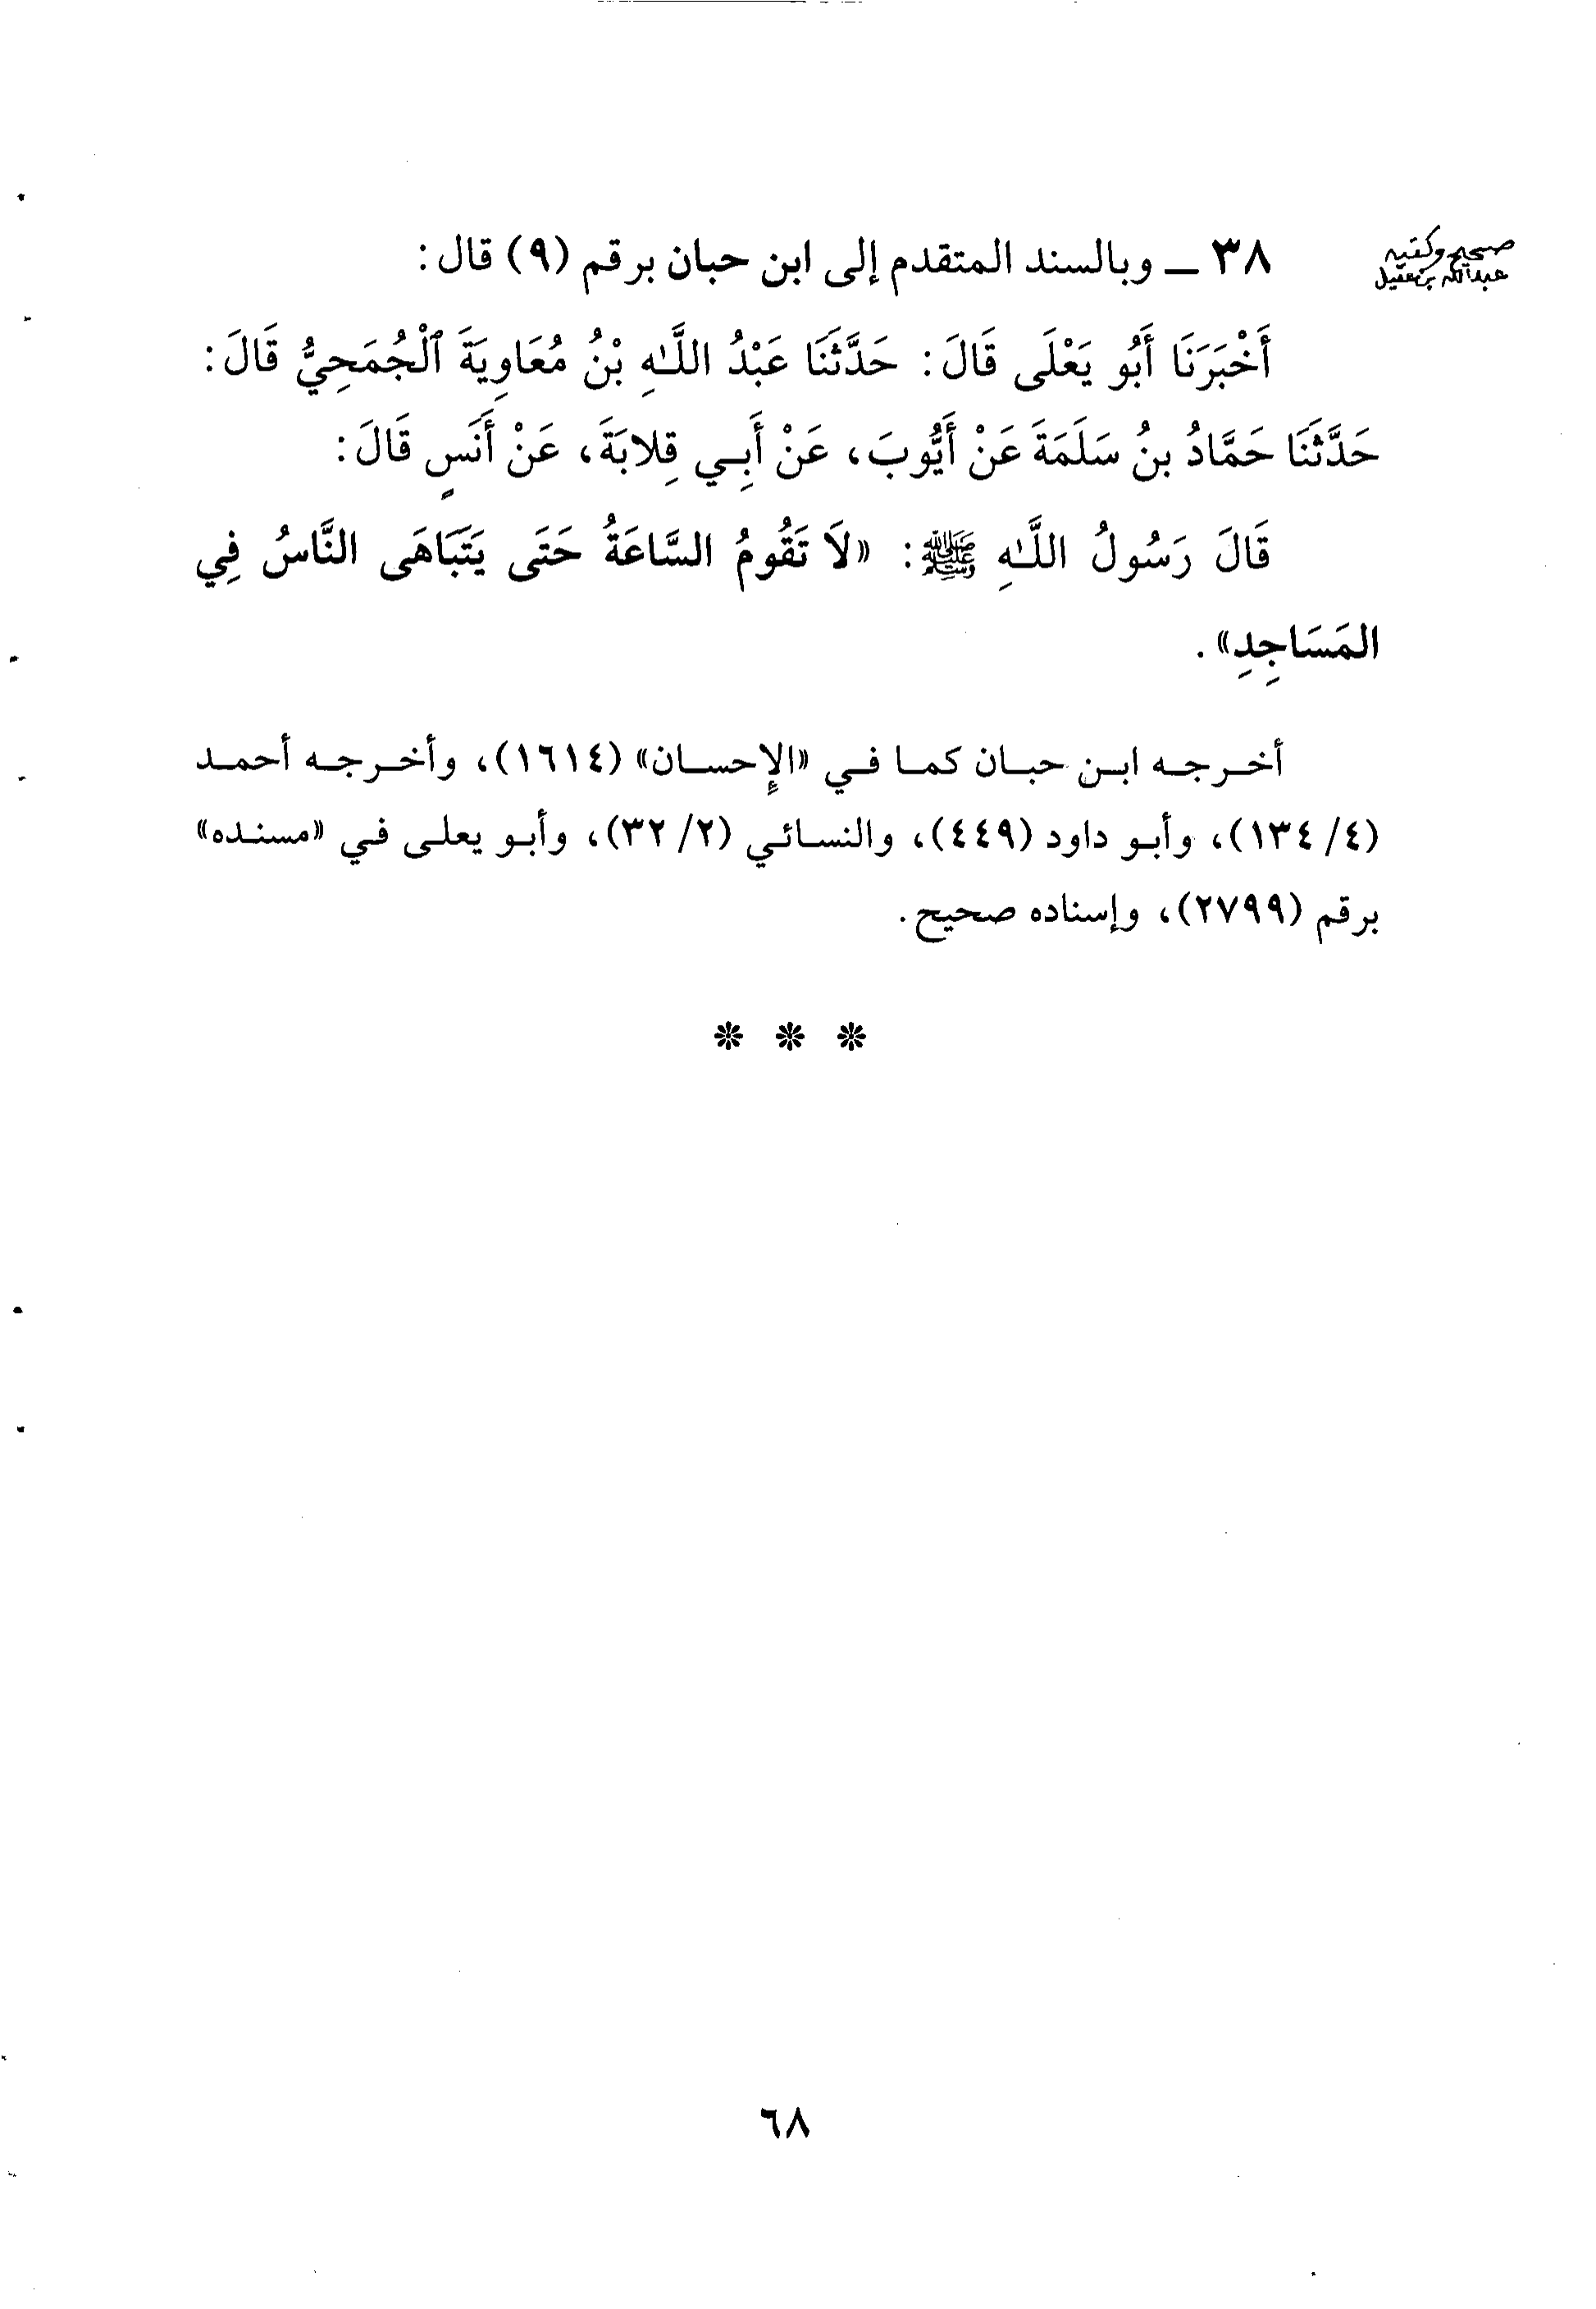 صحيح وكتبه
عبدالله بن عقيل
٣٨ ــ وبالسند المتقدم إلى ابن حبان برقم (٩) قال:
أَخْبَرَنَا أَبُو يَعْلَى قَالَ: حَدَّثَنَا عَبْدُ اللَّـٰهِ بْنُ مُعَاوِيَةَ ٱلْجُمَحِيُّ قَالَ:
حَدَّثَنَا حَمَّادُ بنُ سَلَمَةَ عَنْ أَيُّوبَ، عَنْ أَبِـي قِلابَةَ، عَنْ أَنَسٍ قَالَ:
قَالَ رَسُولُ اللَّـٰهِ ﷺ: «لاَ تَقُومُ السَّاعَةُ حَتَى يَتَبَاهَى النَّاسُ فِي
المَسَاجِدِ».
أخرجه ابن حبان كما في «الإحسان» (١٦١٤)، وأخرجه أحمد
(٤/ ١٣٤)، وأبو داود (٤٤٩)، والنسائي (٢/ ٣٢)، وأبو يعلى في «مسنده»
برقم (٢٧٩٩)، وإسناده صحيح.
٦٨